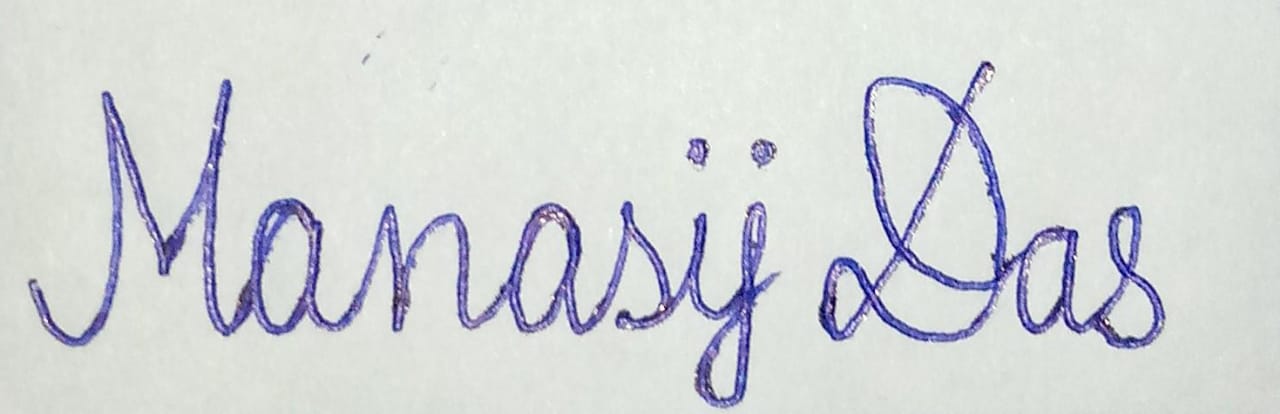 Manasij Das